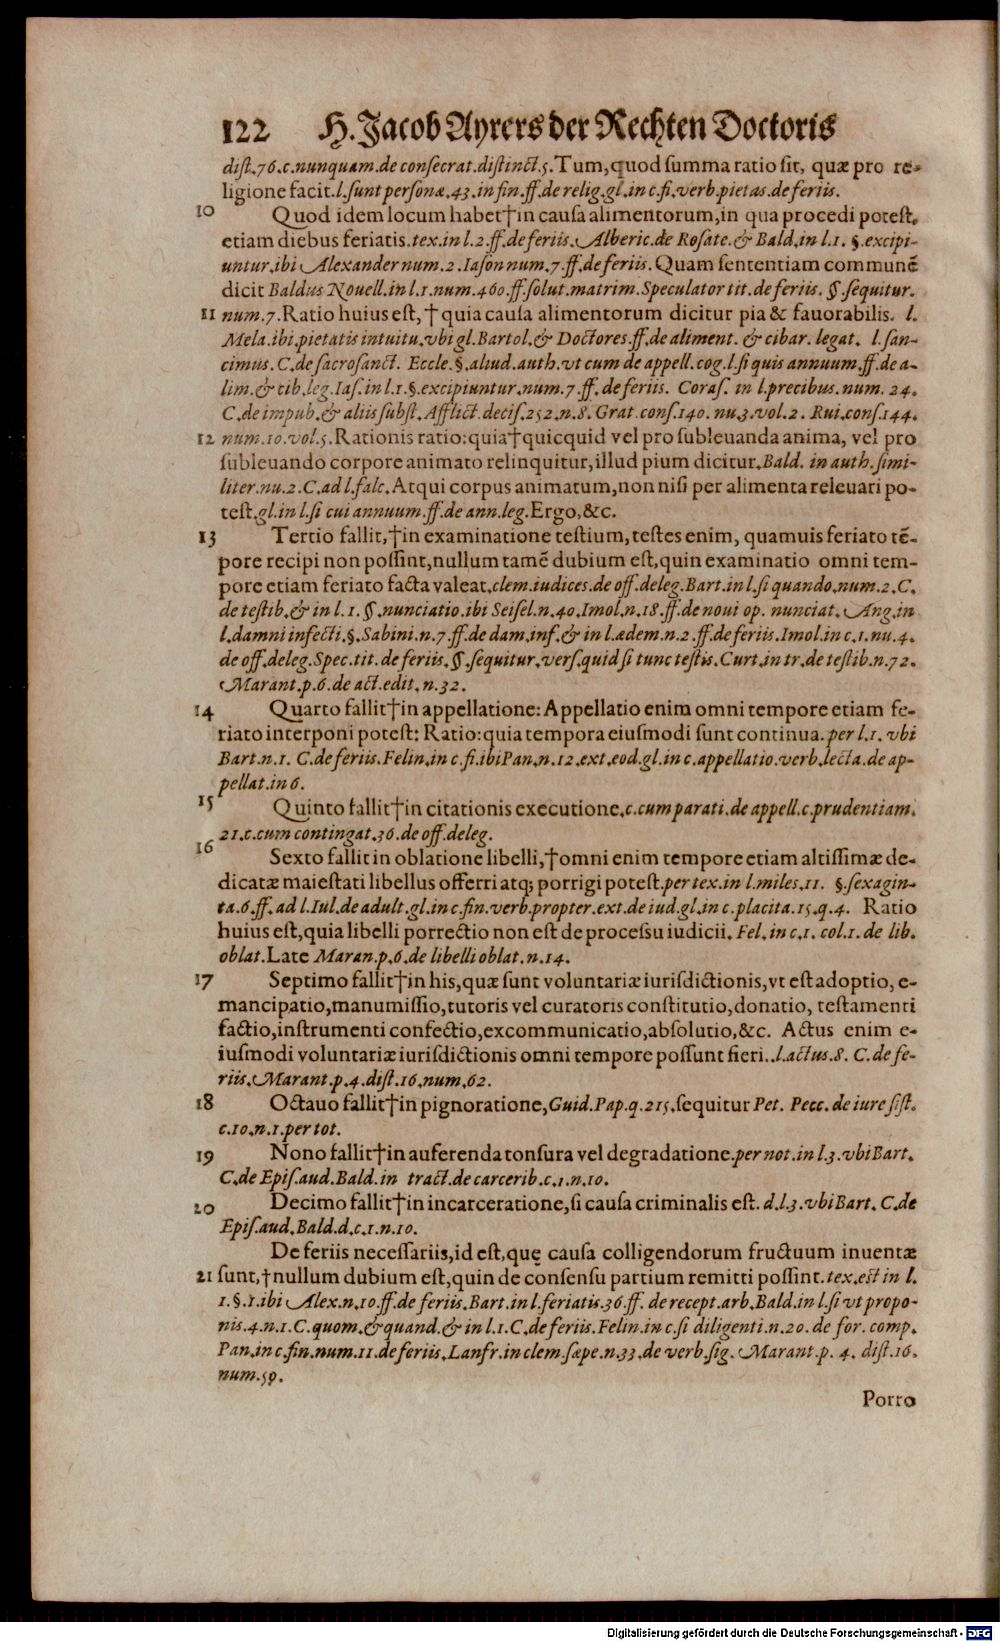 122 H. Jacob Ayrers der Rechten Doctoris
dist.76.c.nunquam.de consecrat.distinct.5.Tum,quod summa ratio sit, quæ pro re-
ligione facit.l.sunt personæ.43.in fin.ff.de relig.gl.in c.fi.verb.pietas.de feriis.
10 Quod idem locum habet†in causa alimentorum,in qua procedi potest,
etiam diebus feriatis.tex.in l.2.ff.de feriis.Alberic.de Rosate.& Bald.in l.1. §.excipi-
untur.ibi Alexander num.2.Iason num.7.ff.de feriis.Quam sententiam communẽ
dicit Baldus Nouell.in l.1.num.460.ff.solut.matrim.Speculator tit.de feriis. §.sequitur.
11 num.7.Ratio huius est, † quia causa alimentorum dicitur pia & fauorabilis. l.
Mela.ibi.pietatis intuitu.vbi gl.Bartol.& Doctores.ff.de aliment. & cibar. legat. l.san-
cimus.C.de sacrosanct. Eccle.§.aliud.auth.vt cum de appell.cog.l.si quis annuum.ff.de a-
lim.& cib.leg.Ias.in l.1.§.excipiuntur.num.7.ff.de feriis. Coras. in l.precibus.num. 24.
C.de impub.& aliis subst.Afflict.decis.252.n.8.Grat.cons.140. nu.3.vol.2. Rui.cons.144.
12 num.10.vol.5.Rationis ratio:quia†quicquid vel pro subleuanda anima, vel pro
subleuando corpore animato relinquitur,illud pium dicitur.Bald. in auth.simi-
liter.nu.2.C.ad l.falc.Atqui corpus animatum,non nisi per alimenta releuari po-
test.gl.in l.si cui annuum.ff.de ann.leg.Ergo,&c.
13 Tertio fallit,†in examinatione testium,testes enim, quamuis feriato tẽ-
pore recipi non possint,nullum tamẽ dubium est,quin examinatio omni tem-
pore etiam feriato facta valeat.clem.iudices.de off.deleg.Bart.in l.si quando.num.2.C.
de testib.& in l. 1. §.nunciatio.ibi Seisel.n.40.Imol.n.18.ff.de noui op. nunciat. Ang.in
l.damni infecti.§.Sabini.n.7.ff.de dam.inf.& in l.ædem.n.2.ff.de feriis.Imol.in c.1.nu.4.
de off.deleg.Spec.tit.de feriis.§.sequitur.vers.quid si tunc testis.Curt.in tr.de testib.n.72.
Marant.p.6.de act.edit.n.32.
14 Quarto fallit†in appellatione: Appellatio enim omni tempore etiam fe-
riato interponi potest: Ratio:quia tempora eiusmodi sunt continua.per l.1. vbi
Bart.n.1. C.de feriis.Felin.in c.fi.ibi Pan.n.12.ext.eod.gl.in c.appellatio.verb.lecta.de ap-
pellat.in 6.
15 Quinto fallit†in citationis executione.c.cum parati.de appell.c.prudentiam.
21.c.cum contingat.36.de off.deleg.
16 Sexto fallit in oblatione libelli,†omni enim tempore etiam altissimæ de-
dicatæ maiestati libellus offerri atq; porrigi potest.per tex.in l.miles.11. §.sexagin-
ta.6.ff.ad l.Iul.de adult.gl.in c.fin.verb.propter.ext.de iud.gl.in c.placita.15.q.4. Ratio
huius est,quia libelli porrectio non est de processu iudicii. Fel.in c.1. col.1. de lib.
oblat.Late Maran.p.6.de libelli oblat.n.14.
17 Septimo fallit†in his,quæ sunt voluntariæ iurisdictionis,vt est adoptio, e-
mancipatio,manumissio,tutoris vel curatoris constitutio,donatio, testamenti
factio,instrumenti confectio,excommunicatio,absolutio,&c. Actus enim e-
iusmodi voluntariæ iurisdictionis omni tempore possunt fieri..l.actus.8. C.de fe-
riis.Marant.p.4.dist.16.num.62.
18 Octauo fallit†in pignoratione,Guid.Pap.q.215.sequitur Pet. Pecc.de iure sist.
c.10.n.1.per tot.
19 Nono fallit†in auferenda tonsura vel degradatione.per not.in l.3.vbi Bart.
C.de Epis.aud.Bald.in tract.de carcerib.c.1.n.10.
20 Decimo fallit†in incarceratione,si causa criminalis est. d.l.3.vbi Bart. C.de
Epis.aud.Bald.d.c.1.n.10.
De feriis necessariis,id est,quę causa colligendorum fructuum inuentæ
21 sunt,†nullum dubium est,quin de consensu partium remitti possint.tex.est in l.
1.§.1.ibi Alex.n.10.ff.de feriis.Bart.in l.feriatis.36.ff. de recept.arb.Bald.in l.si vt propo-
nis.4.n.1.C.quom.& quand.& in l.1.C.de feriis.Felin.in c.si diligenti.n.20.de for. comp.
Pan.in c.fin.num.11.de feriis.Lanfr.in clem.sæpe.n.33.de verb.sig. Marant.p. 4. dist.16.
num.59.
Porro
Digitalisierung gefördert durch die Deutsche Forschungsgemeinschaft - DFG